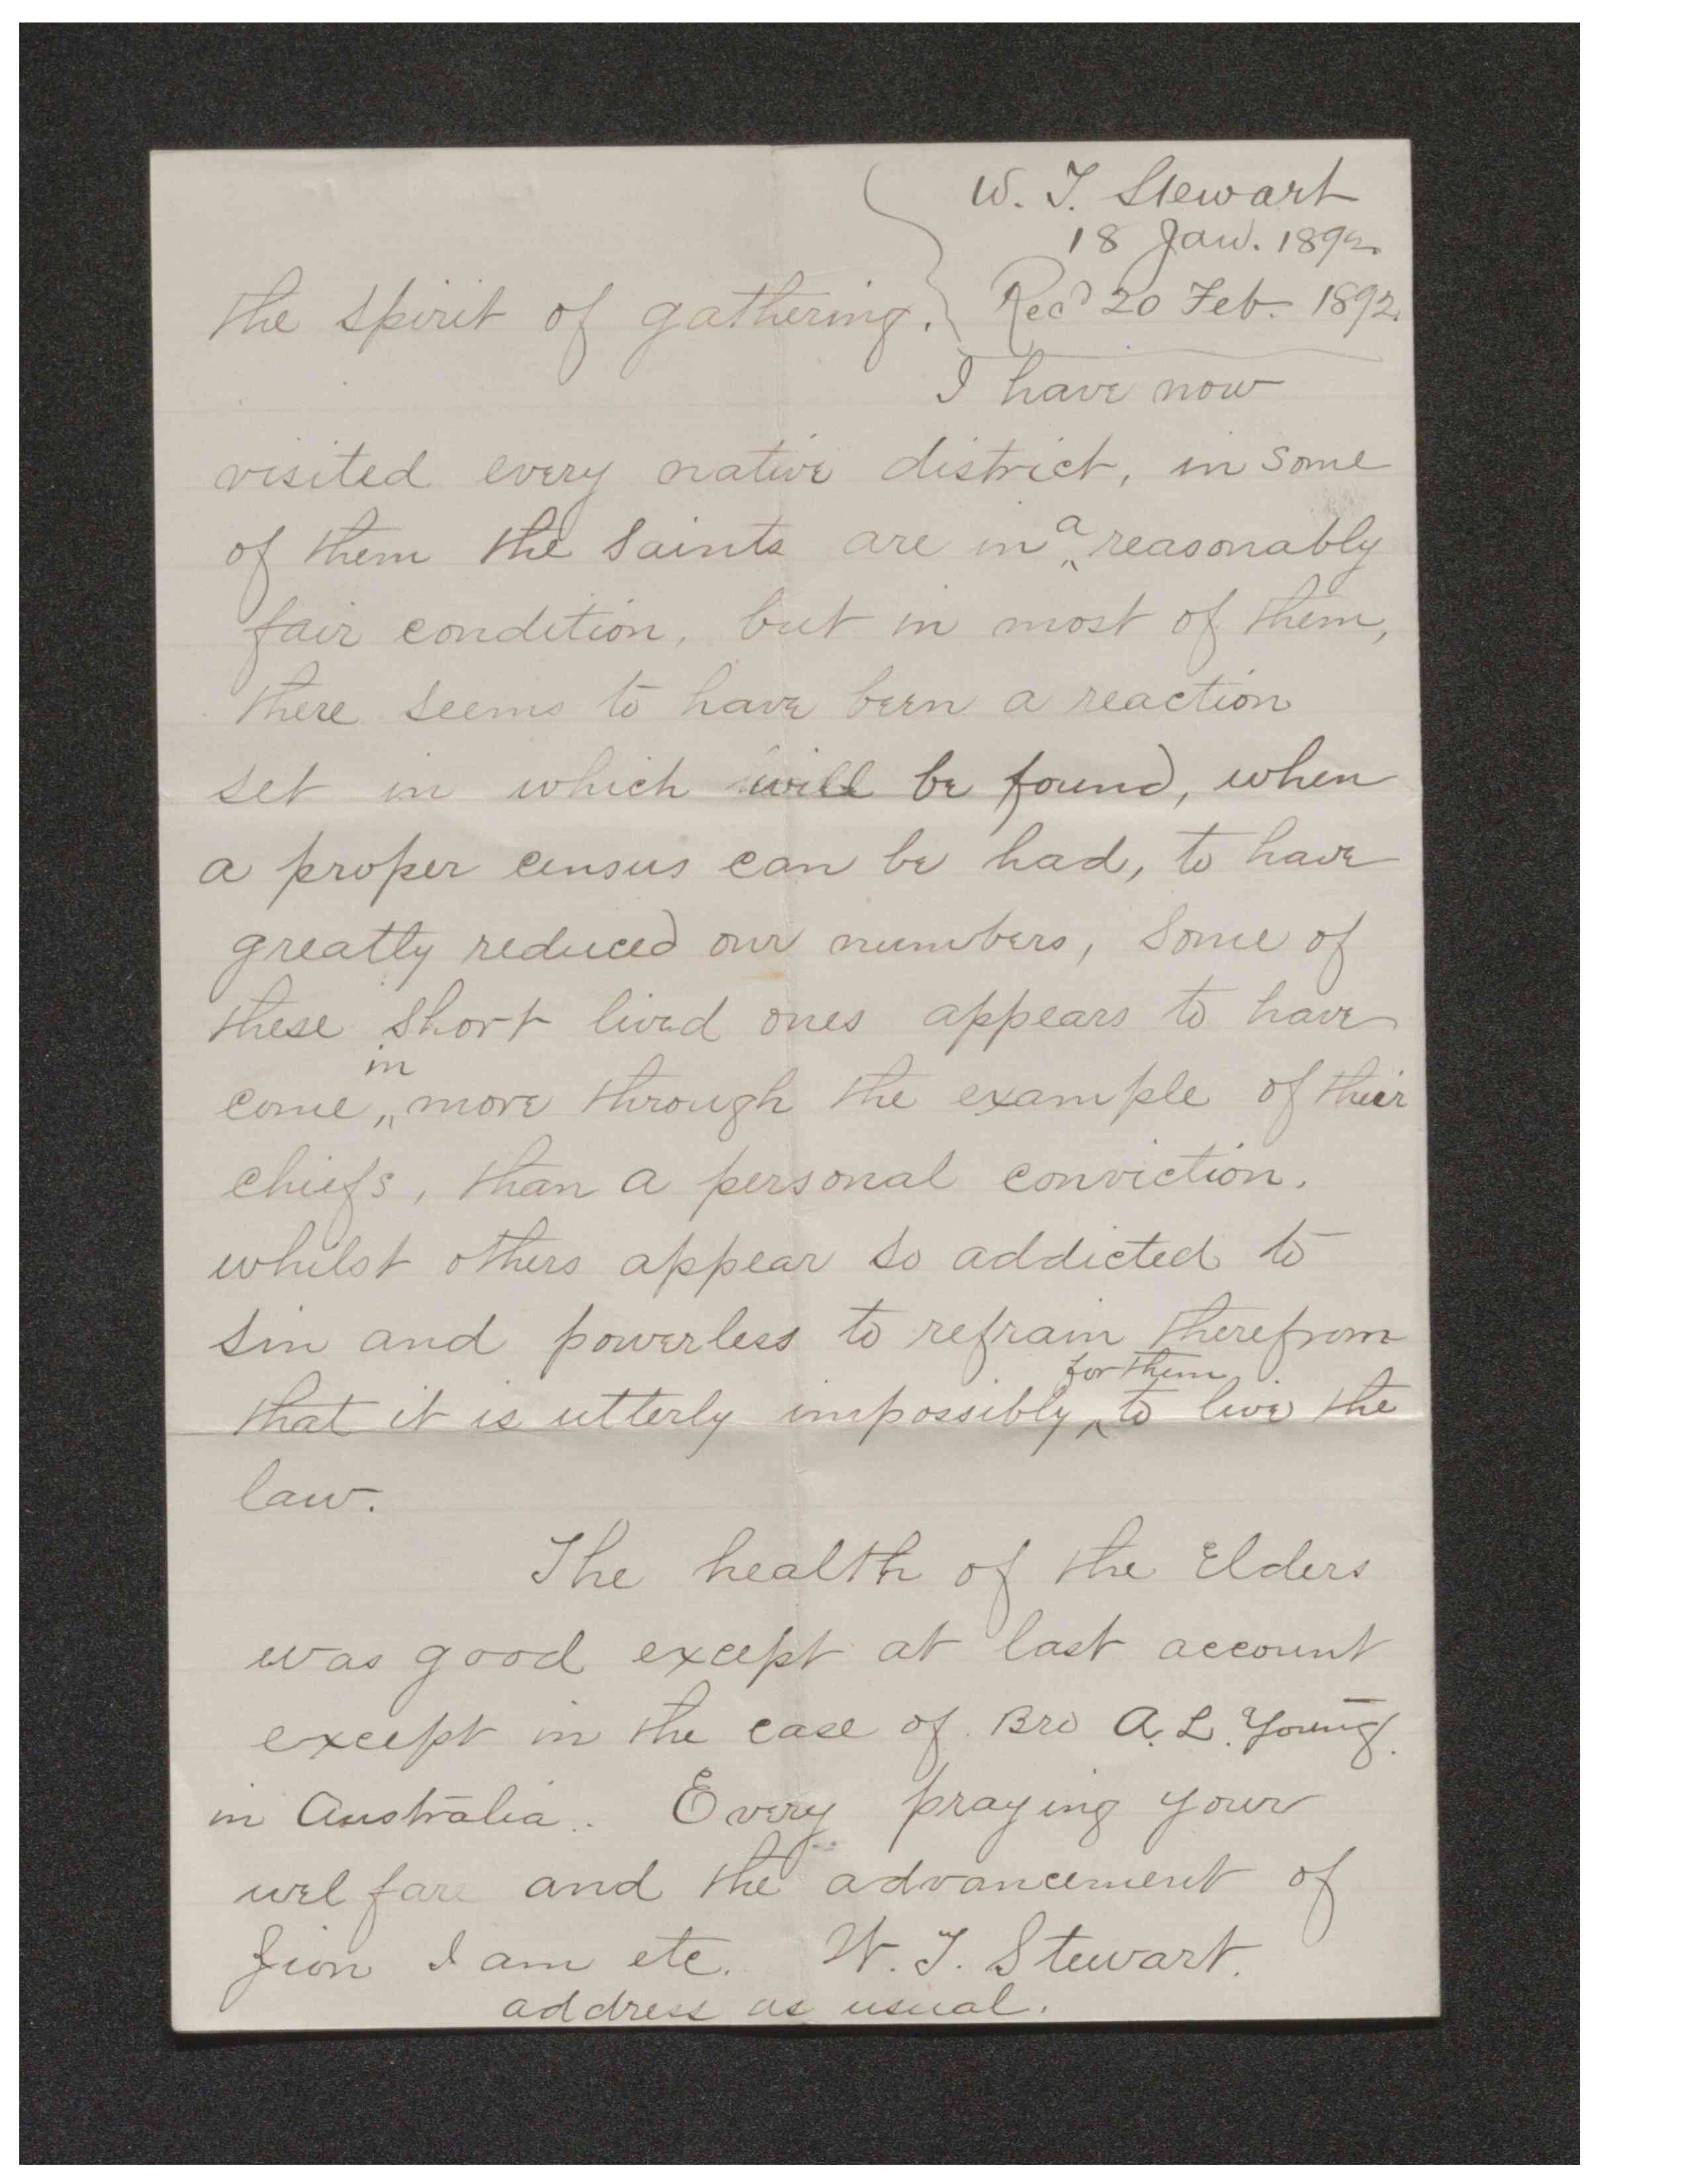 W. T. Stewart
18 Jan. 1892.
Rec'd 20 Feb. 1892.
the spirit of gathering.
I have now
visited every native district, in some
of them the Saints are in a reasonably
fair condition, but in most of them,
there seems to have been a reaction
set in which will be found, when
a proper census can be had, to have
greatly reduced our numbers, Some of
these short lived ones appears to have
come in more through the example of their
chiefs, than a personal conviction.
whilst others appear so addicted to
sin and powerless to refrain therefrom
that it is utterly impossibly for them to live the
law.
The health of the Elders
was good except at last account
except in the case of Bro A. L. Young.
in Australia. Every praying your
welfare and the advancement of
Zion I am etc. W. T. Stewart.
address as usual.